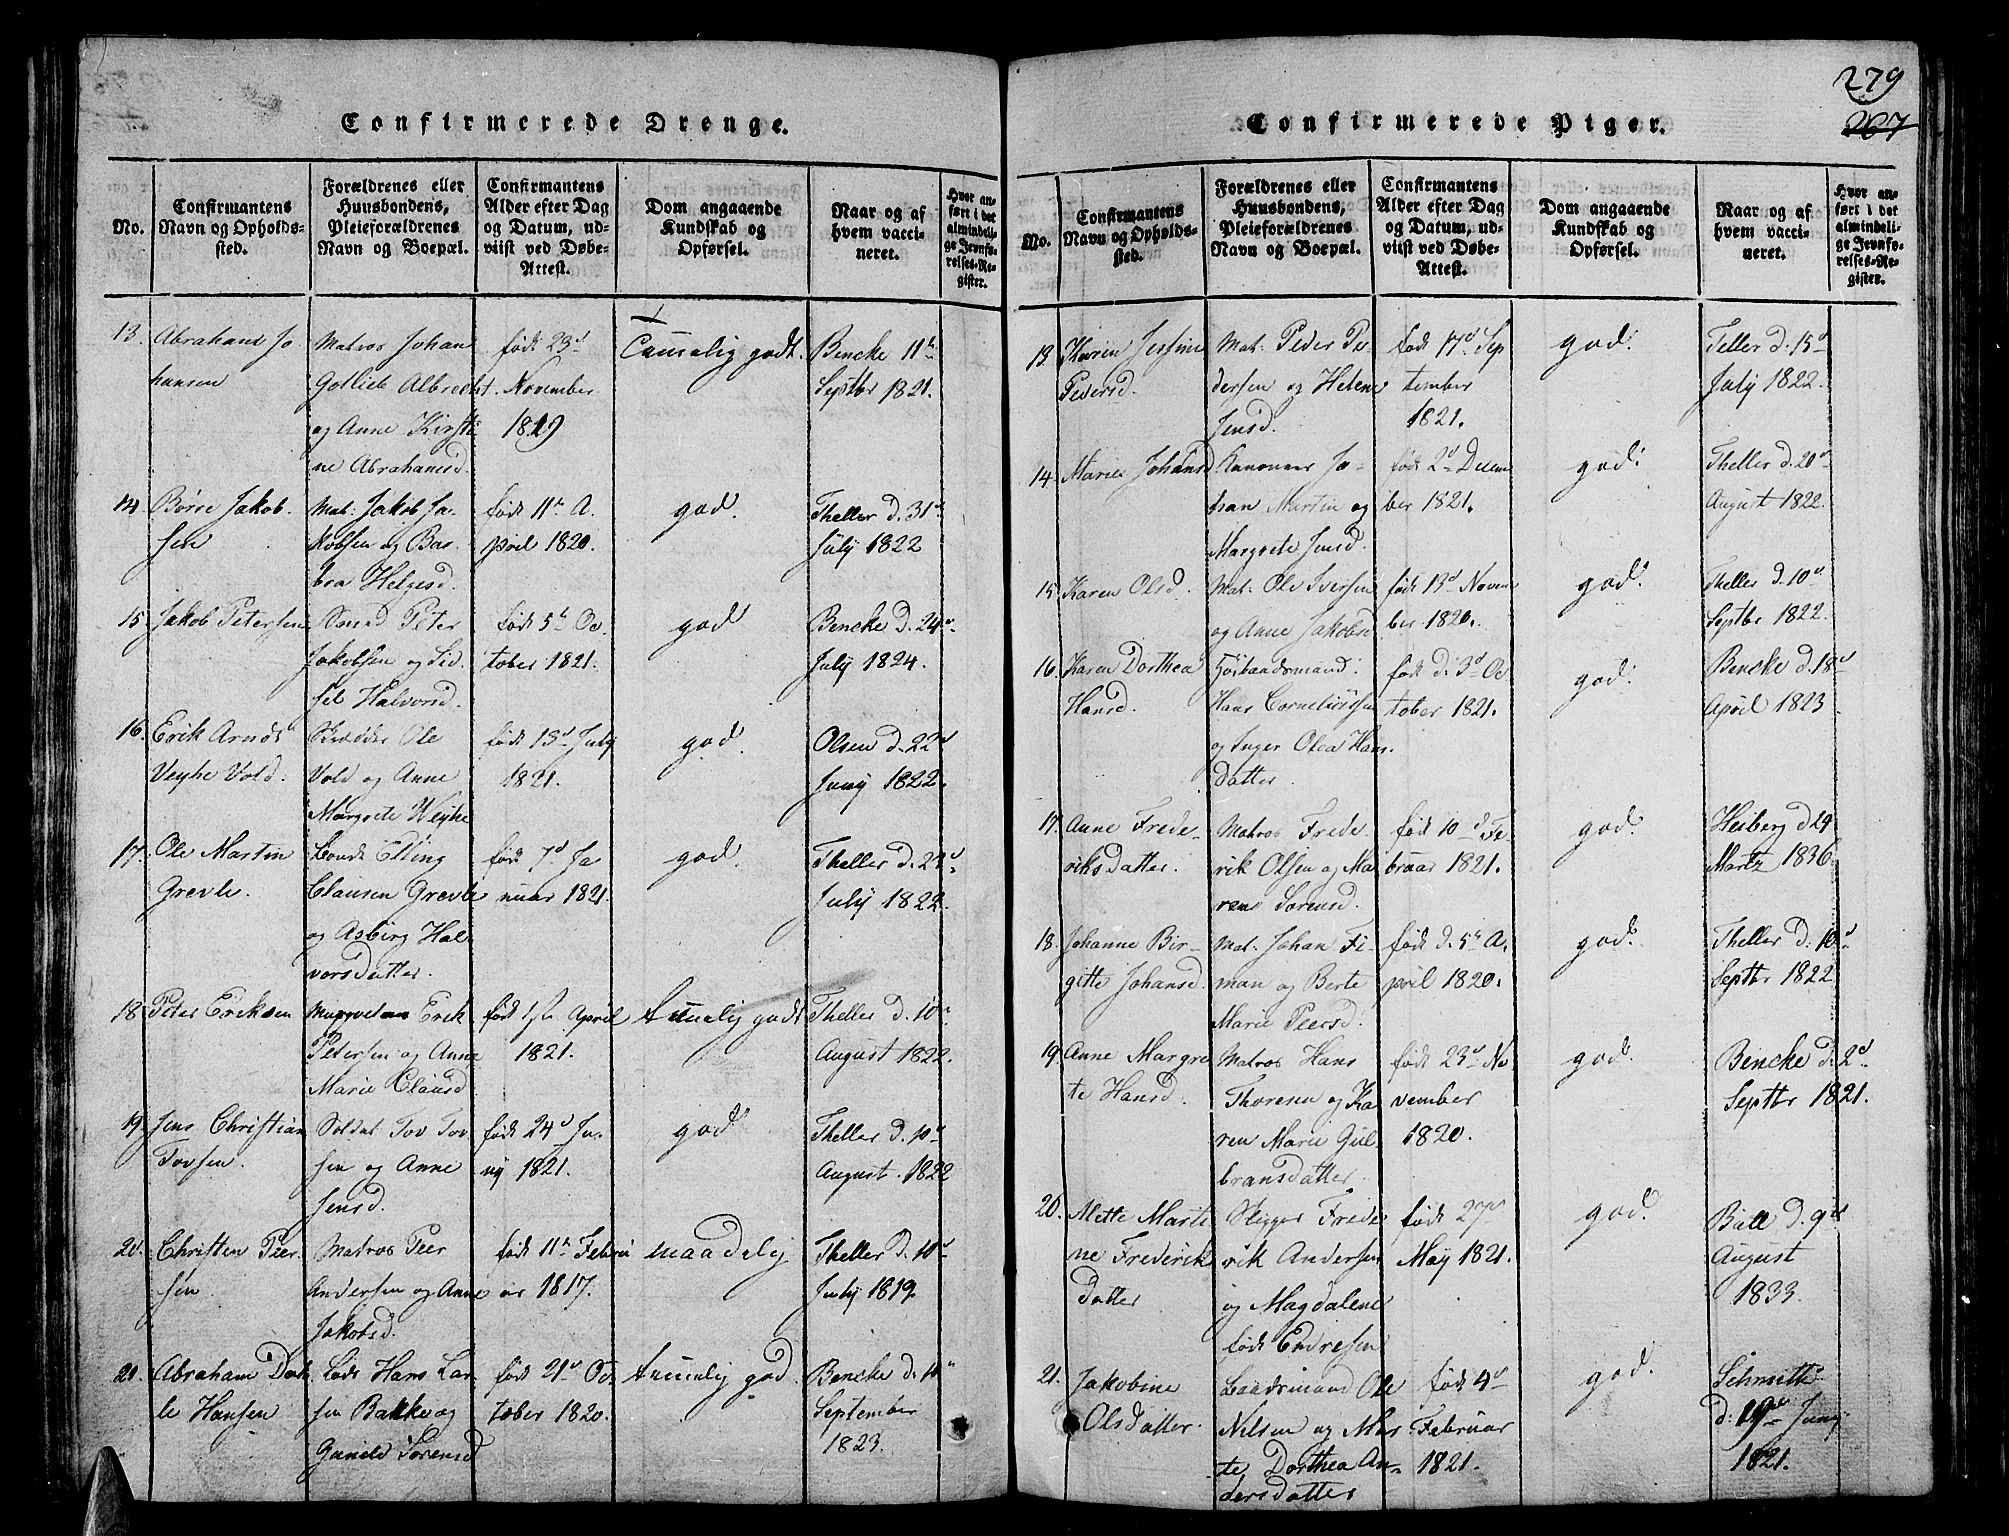 279
267
Confirmerede Drenge.
No.
Confirmantens
Navn og Opholds-
sted.
Forældrenes eller
Huusbondens,
Pleieforældrenes
Navn og Boepæl.
Confirmantens
Alder efter Dag
og Datum, ud-
viist ved Døbe-
Attest.
Dom angaaende
Kundskab og
Opførsel.
Naar og af
hvem vacci-
neret.
Hvor an-
ført i det
almindeli-
ge Jevnfø-
relses-Re-
gister.
13. Abraham Jo
hansen
Matros Johan
Gotlieb Albrecht
og Anne Kirsti
ne Abrahamsd.
født 23d
November
1819
Taumelig godt.
Bencke 11te
Septbr 1821.
14. Børre Jakob
sen
Mat. Jakob Ja
kobsen og Bar
bra Helgesd.
født 11te A.
pril 1820.
god.
Theller d. 31te
July 1822
15. Jakob Petersen
Smed Peter
Jakobsen og Sid
sel Halvorsd.
født 5te Oc
tober 1821.
god
Bencke d. 24de
July 1824.
16. Erik Arndt
Veyhe Vold.
Skrædder Ole
Vold og Anne
Margrete Weyhe
født 13d July
1821.
god.
Olsen d. 22d
Juny 1822.
17. Ole Martin
Grevle.
Elling
Clausen Grevle
og Asbiørg Hal
vorsdatter.
født 7d Ja
nuar 1821.
god.
Theller d. 24d
July 1822.
18. Peter Eriksen
Erik
Petersen og Anne
Marie Clausd
født 1ste April
1821.
temmelig godt
Theller d. 10de
August 1822.
19. Jens Christian
Tovsen.
Soldat Tov Tov
sen og Anne
Jensd.
født 24d Ju
ny 1821.
god
Theller d. 10d
August 1822
20. Christen Peer
sen
Matros Peer
Andersen og Anne
Jakobsd.
født 11te Febru
ar 1817.
maadelig
Theller d. 10d
July 1819.
21. Abraham
le Hansen
Lods Hans Lar
sen Bakke og
Gunild Sørensd
født 21d Oc
tober 1820.
temmelig god.
Bencke d. 10
September
1823.
Confirmerede Piger.
No.
Confirmantens
Navn og Opholds-
sted.
Forældrenes eller
Huusbondens,
Pleieforældrenes
Navn og Boepæl.
Confirmantens
Alder efter Dag
og Datum, ud-
viist ved Døbe-
Attest.
Dom angaaende
Kundskab og
Opførsel.
Naar og af
hvem vacci-
neret.
Hvor an-
ført i det
almindeli-
ge Jevnfø-
relses-Re-
gister.
13. Karen Jessine
Pedersd.
Mat. Peder Pe
dersen og Helene
Jensd.
født 17d Sep
tember
1821.
god.
Teller d. 15de
July 1822.
14. Maria Johansd
Kanoneer Jo-
han Martin og
Margrete Jensd.
født 2d Decem
ber 1821.
god.
Theller d. 20de
August 1822.
15. Karen Olsd.
Mat. Ole Iversen
og Anne Jakobsd
født 13d Novem
ber 1820.
god.
Theller d. 10d
Septbr 1822.
16. Karen Dorthea
Hansd.
Hans Corneliussen
og Inger Olea Hans
datter.
født d. 3d Oc
tober 1821.
god.
Bencke d. 18d
April 1823
17. Anne Frede
riksdatter.
Matros Frede
rik Olsen og Ma
ren Sørensd.
født 10d Fe
bruar 1821.
god.
Heiberg d 29
Martz 1836.
18. Johanne Bir-
gitte Johansd.
Mat. Johan Fi-
man og Berte
Marie Peersd.
født d. 5te A.
pril 1820.
god.
Theller d. 10d
Septbr 1822
19. Anne Margre
te Hansd.
Matros Hans
Thoresen og Ka
ren Marie Gul
bransdatter
født 23d No
vember
1820.
god.
Bencke d. 2d
Septbr 1821.
20. Mette Marti
ne Frederik
datter
Frede
rik Andersen
og Magdalene
født Endresen
født 27d
May 1821.
god.
Ball d. 9de
August
1833.
21. Jakobine
Olsdatter.
Baadsmand Ole
Nilsen og Mar
te Dorthea An-
dersdatter
født 4d
Februar
1821.
god.
Schmitte
d. 19de Juny
1821.